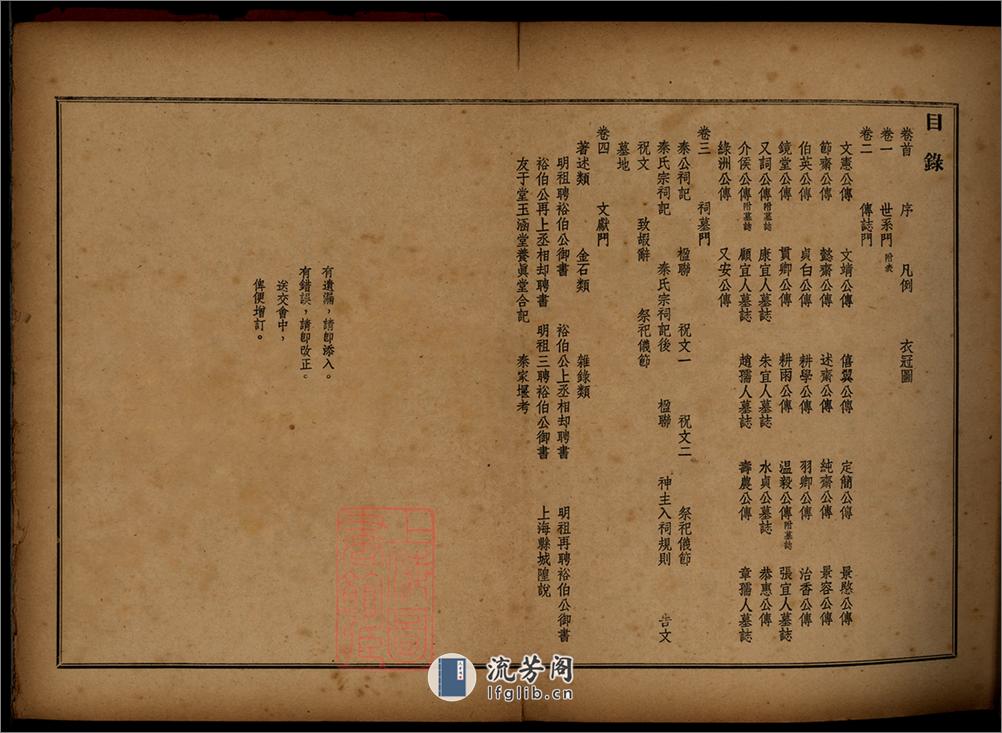 目錄
卷首 序 凡例 衣冠圖
卷一 世系門 附表
卷二 傳誌門
文憲公傳 文靖公傳 僖翼公傳 定簡公傳 景愍公傳
節齋公傳 懿齋公傳 述齋公傳 純齋公傳 景容公傳
伯英公傳 貞白公傳 耕學公傳 羽卿公傳 治香公傳
鏡堂公傳 貫卿公傳 耕雨公傳 温毅公傳附墓誌 張宜人墓誌
又詞公傳附墓誌 康宜人墓誌 朱宜人墓誌 水貞公墓誌 恭惠公傳
介侯公傳附墓誌 顧宜人墓誌 趙孺人墓誌 壽農公傳 章孺人墓誌
綠洲公傳 又安公傳
卷三 祠墓門
秦公祠記 楹聯 祝文一 祝文二 祭祀儀節
秦氏宗祠記 秦氏宗祠記後 楹聯 神主入祠規則 告文
祝文 致嘏辭 祭祀儀節
墓地
卷四 文獻門
著述類 金石類 雜錄類
明祖聘裕伯公御書 裕伯公上丞相却聘書 明祖再聘裕伯公御書
裕伯公再上丞相却聘書 明祖三聘裕伯公御書 上海縣城隍說
友于堂玉涵堂養眞堂合記 秦家堰考
有遺漏，請卽添入。
有錯誤，請卽改正。
送交會中，
俾便增訂。
上海圖書館藏
流芳阁
lfglib.cn